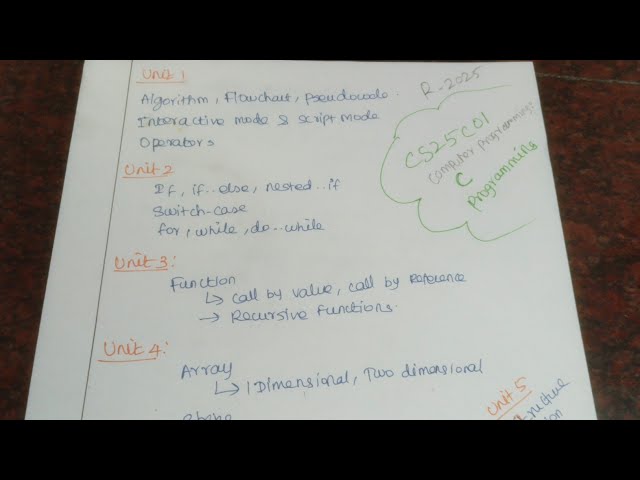 Unit 1
Algorithm, Flowchart, pseudocode.
Interactive mode & script mode
Operators
Unit 2
If, if..else, nested..if
Switch-case
for, while, do..while
Unit 3:
Function
↳ call by value, call by Reference
→ Recursive Functions.
Unit 4:
Array
↳ 1 Dimensional, Two dimensional
R-2025
CS25C01
Computer Programming:
C
Programming
Unit 5